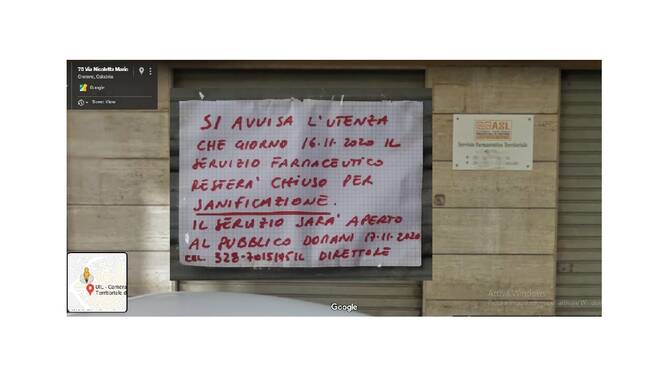 75 Via Nicoletta Mario
Crotone, Calabria
Google
Street View
SI AVVISA L'UTENZA
CHE GIORNO 16.11.2020 IL
SERVIZIO FARMACEUTICO
RESTERA' CHIUSO PER
SANIFICAZIONE.
IL SERVIZIO SARA' APERTO
AL PUBBLICO DOMANI 17.11.2020
CEL. 328-7015195 IL DIRETTORE
ASL
Servizio Farmaceutico Territoriale
UIL - Camera
Territoriale d
Google
Attiva Windows